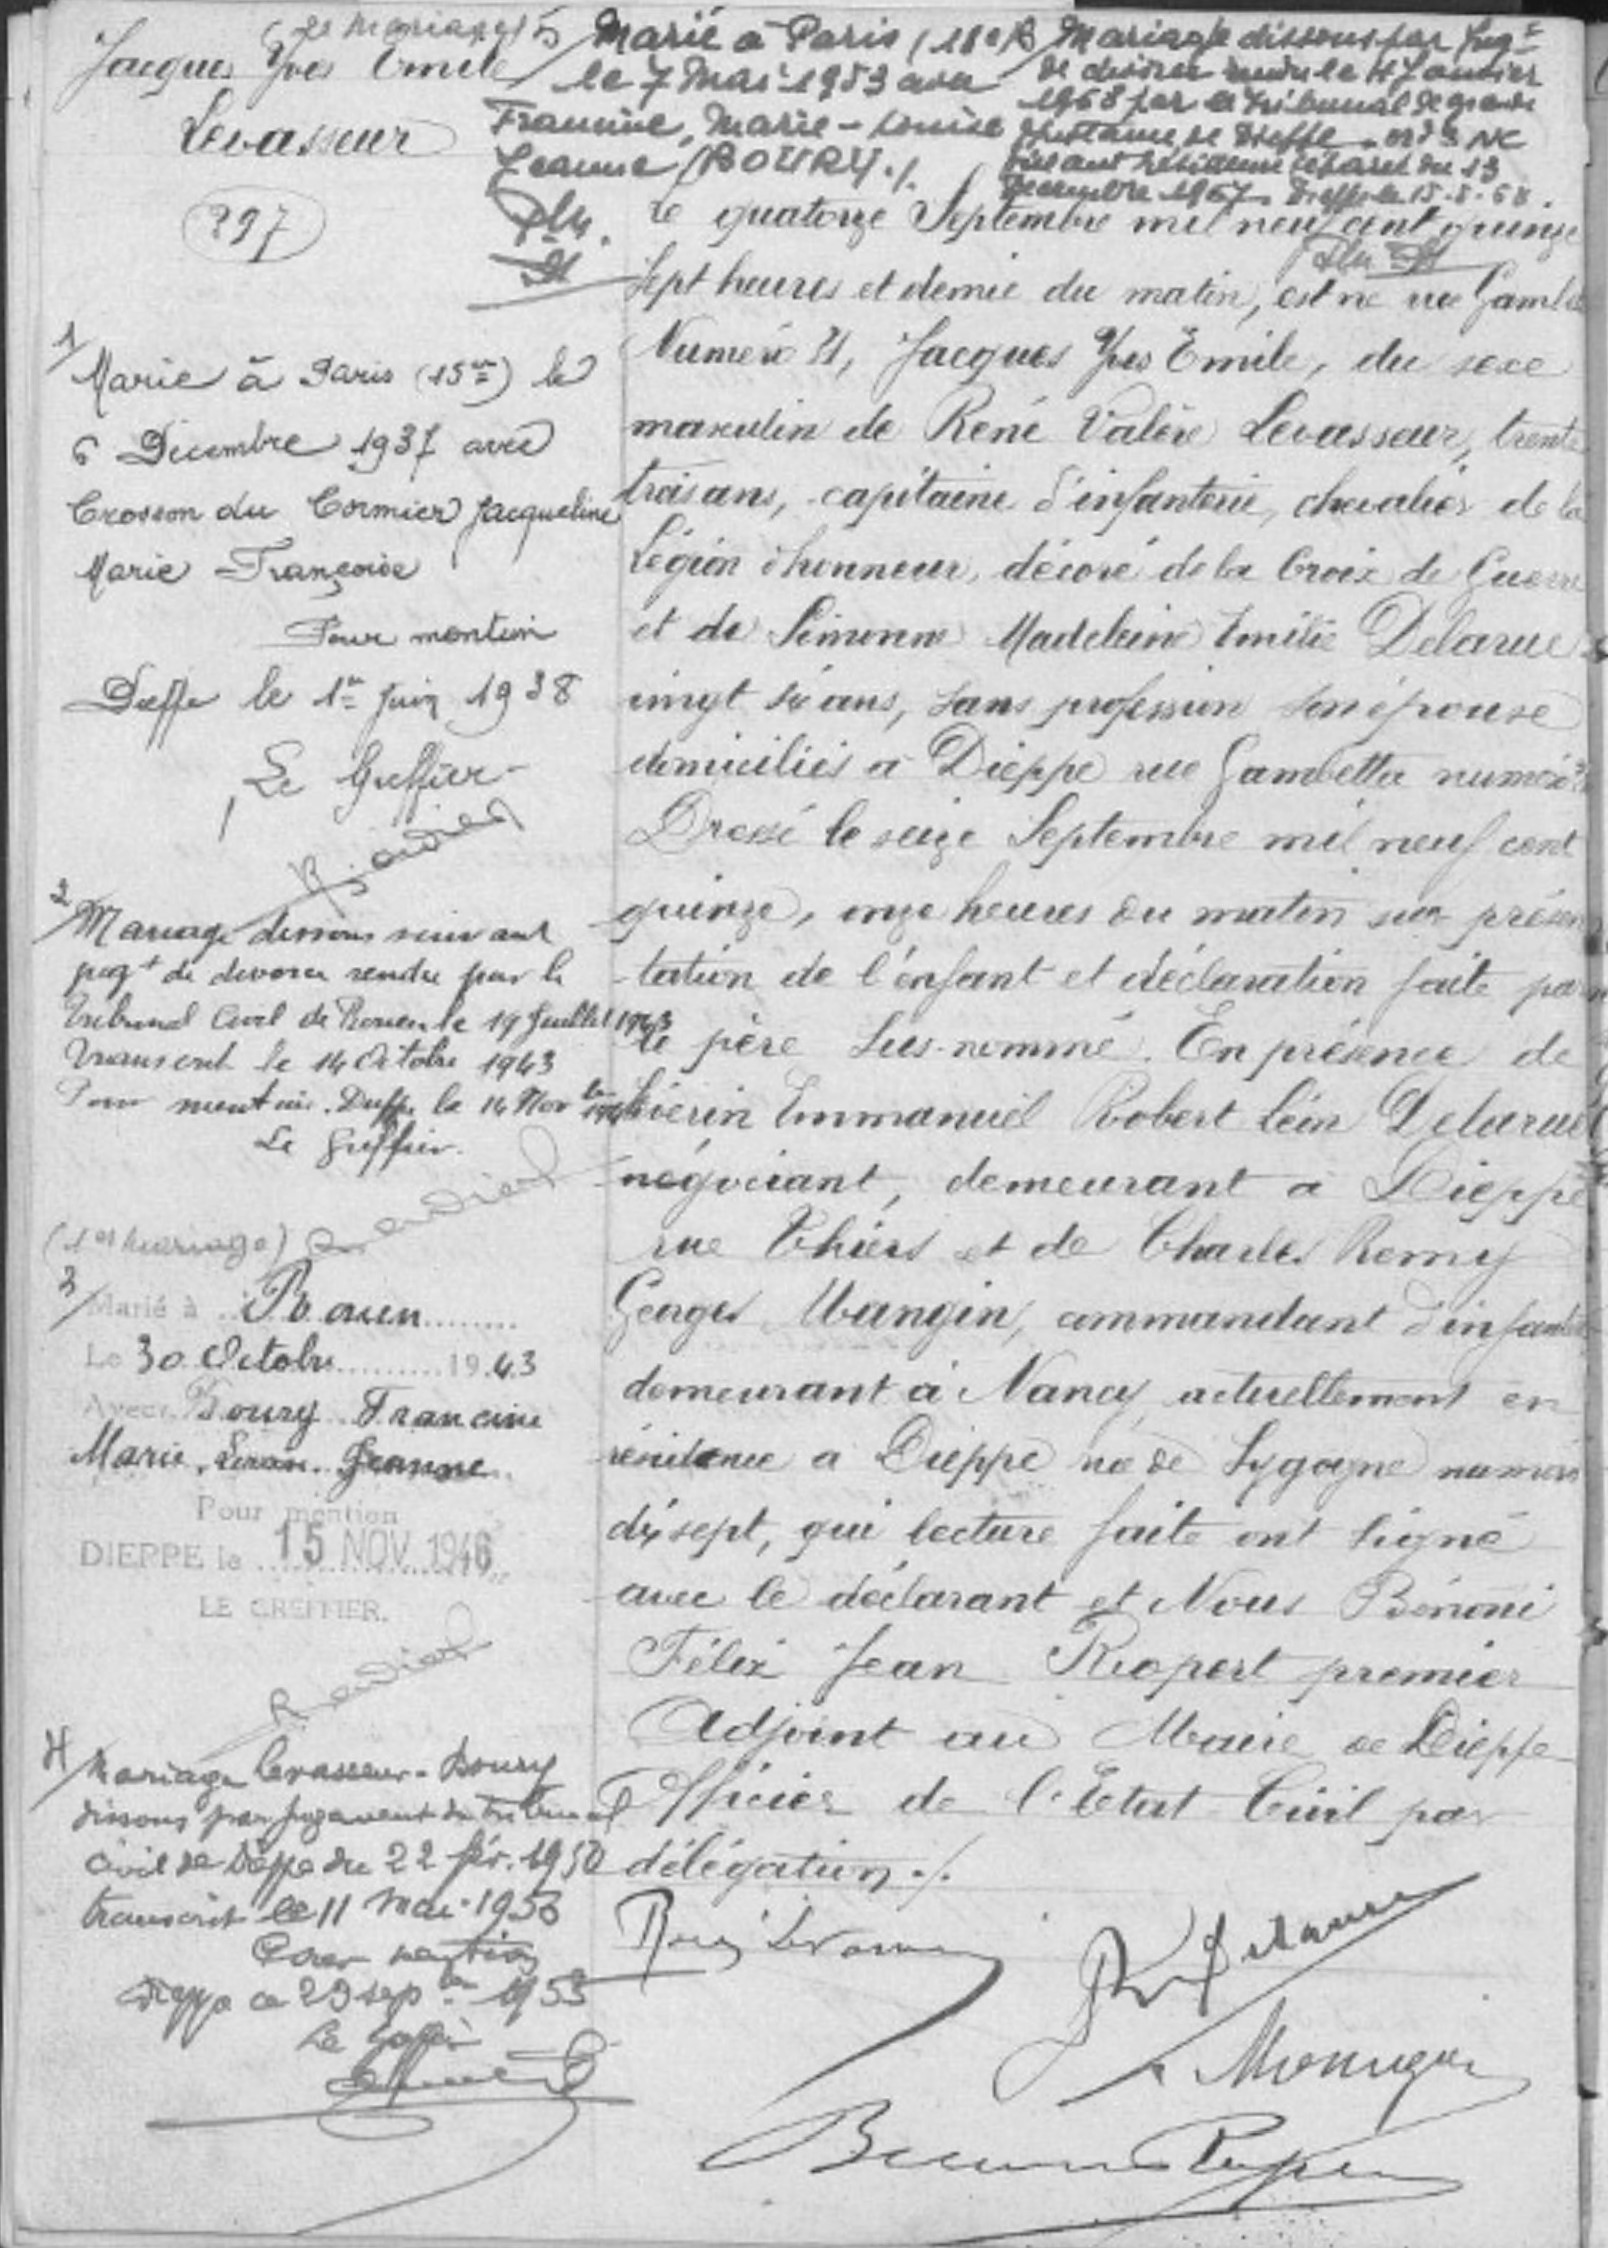 Jacques Yves Emile
Levasseur
297
(2e mariage) 5/ Marié à Paris (18e)
le 7 Mai 1953 avec
Francine, Marie-Louise
Jeanne BOURY ./.
6/ Mariage dissous par Jugt
de divorce rendu le 4 Janvier
1968 par le Tribunal de grande
Instance de Dieppe - ordce NC
fixant résidence séparée du 13
Décembre 1967. Dieppe le 15-5-68.
1/ Marié à Paris (15me) le
6 Décembre 1937 avec
Crosson du Cormier Jacqueline
Marie Françoise
Pour mention
Dieppe le 1er Juin 1938
Le Greffier
2/ Mariage dissous suivant
jugt de divorce rendu par le
Tribunal Civil de Rouen le 19 Juillet 1943
Transcrit le 14 Octobre 1943
Pour mention. Dieppe le 14 Novbre
Le Greffier.
(1er mariage)
3/ Marié à Rouen
Le 30 Octobre 1943
Avec Boury Francine
Marie, Jeanne
Pour mention
DIEPPE le 15 NOV 1946
LE GREFFIER.
4/ Mariage Levasseur-Boury
dissous par jugement du tribunal
civil de Dieppe du 22 fév. 1950
transcrit le 11 Mai 1950
Pour mention
Dieppe ce 29 sepbre 1953
Le Greffier
Le quatorze Septembre mil neuf cent quinze
sept heures et demie du matin, est né rue Gambetta
Numéro 31, Jacques Yves Emile, du sexe
masculin de René Valère Levasseur, trente
trois ans, capitaine d'infanterie, chevalier de la
Légion d'honneur, décoré de la Croix de Guerre
et de Simonne Madeleine Emilie Delarue
vingt six ans, sans profession son épouse
domiciliés à Dieppe rue Gambetta numéro 31
Dressé le seize Septembre mil neuf cent
quinze, onze heures du matin sur présen
-tation de l'enfant et déclaration faite par
le père sus-nommé. En présence de
Sévérin Emmanuel Robert Léon Delarue
négociant, demeurant à Dieppe
rue Thiers et de Charles Remy
Georges Mangin, commandant d'infanterie
demeurant à Nancy actuellement en
résidence à Dieppe rue de Sygogne numéro
dix sept, qui lecture faite ont signé
avec le déclarant et Nous Bénoni
Félix Jean Ropert premier
Adjoint au Maire de Dieppe
Officier de l'Etat Civil par
délégation ./.